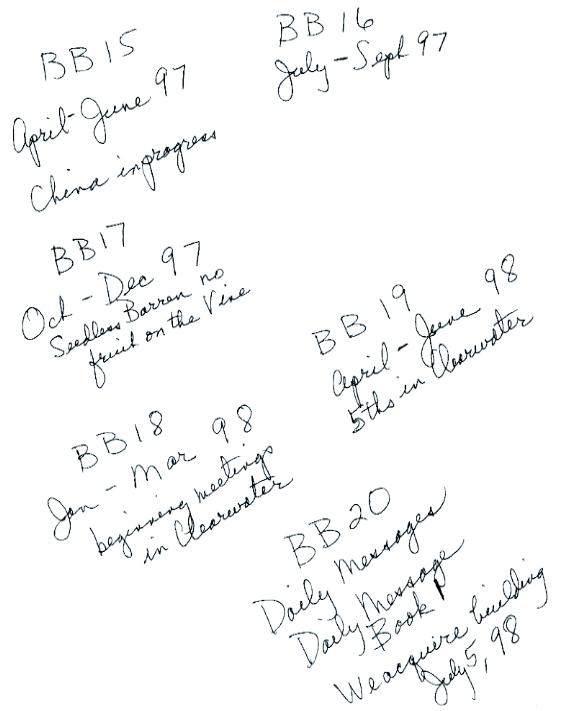 BB 15
April-June 97
China in progress
BB 16
July - Sept 97
BB 17
Oct - Dec 97
Seedless Barren no
fruit on the Vine
BB 18
Jan - Mar 98
beginning meetings
in Clearwater
BB 19
April - June 98
5ths in Clearwater
BB 20
Daily Messages
Daily Message
Book
We acquire building
July 5, 98